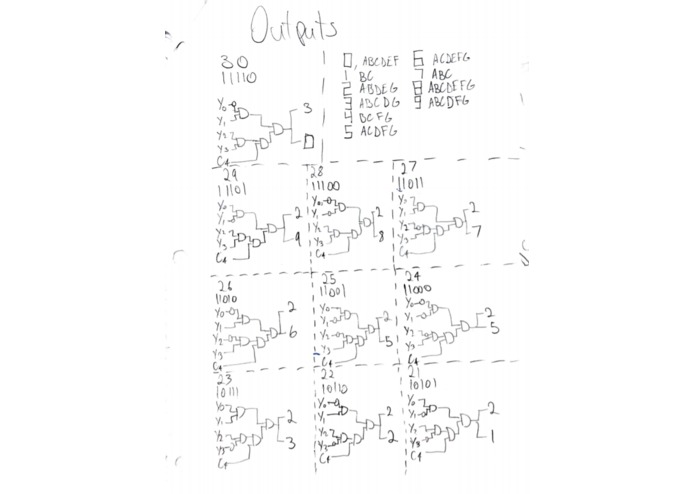 Outputs
30
11110
0, ABCDEF
1 BC
2 ABDEG
3 ABCDG
4 BCFG
5 ACDFG
6 ACDEFG
7 ABC
8 ABCDEFG
9 ABCDFG
Y0
Y1
Y2
Y3
C4
3
0
29
11101
Y0
Y1
Y2
Y3
C4
2
9
28
11100
Y0
Y1
Y2
Y3
C4
2
8
27
11011
Y0
Y1
Y2
Y3
C4
2
7
26
11010
Y0
Y1
Y2
Y3
C4
2
6
25
11001
Y0
Y1
Y2
Y3
C4
2
5
24
11000
Y0
Y1
Y2
Y3
C4
2
5
23
10111
Y0
Y1
Y2
Y3
C4
2
3
22
10110
Y0
Y1
Y2
Y3
C4
2
2
21
10101
Y0
Y1
Y2
Y3
C4
2
1